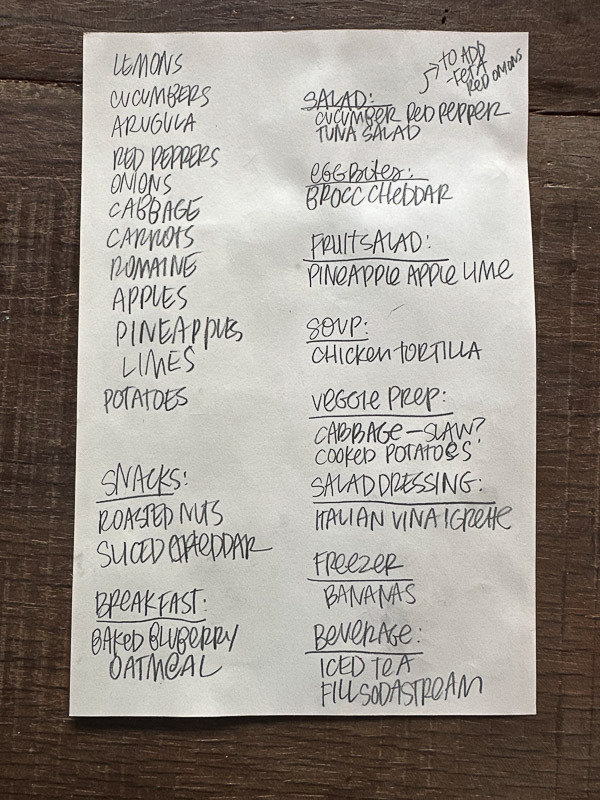 LEMONS
CUCUMBERS
ARUGULA
RED PEPPERS
ONIONS
CABBAGE
CARROTS
ROMAINE
APPLES
PINEAPPLES
LIMES
POTATOES
SNACKS:
ROASTED NUTS
SLICED CHEDDAR
BREAKFAST:
BAKED BLUBERRY
OATMEAL
TO ADD
-FETA
RED ONIONS
SALAD:
CUCUMBER RED PEPPER
TUNA SALAD
EGG BITES:
BROCC CHEDDAR
FRUIT SALAD:
PINEAPPLE APPLE LIME
SOUP:
CHICKEN TORTILLA
VEGGIE PREP:
CABBAGE - SLAW?
COOKED POTATOES
SALAD DRESSING:
ITALIAN VINAIGRETTE
FREEZER
BANANAS
BEVERAGE:
ICED TEA
FILL SODASTREAM